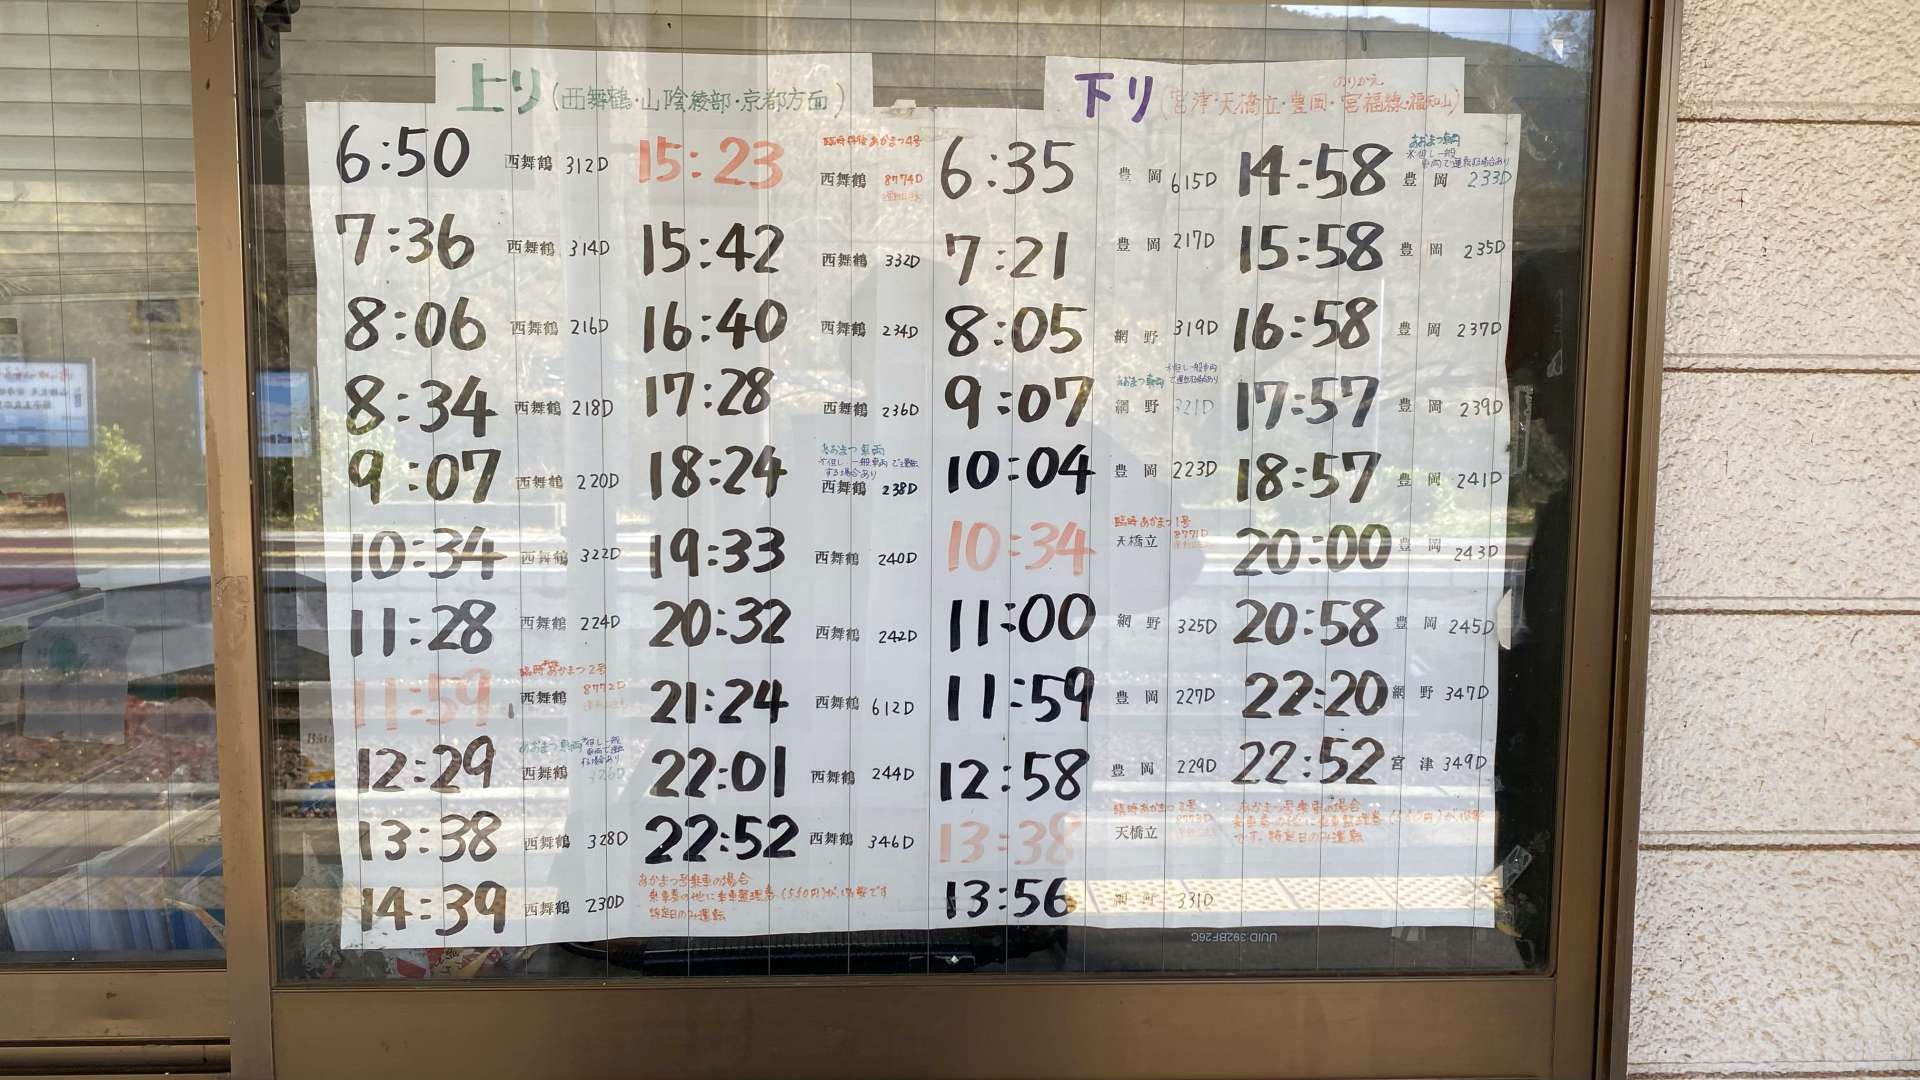 上り(西舞鶴・山陰綾部・京都方面)
6:50 西舞鶴 312D
7:36 西舞鶴 314D
8:06 西舞鶴 216D
8:34 西舞鶴 218D
9:07 西舞鶴 220D
10:34 西舞鶴 322D
11:28 西舞鶴 224D
臨時あかまつ2号
11:59 西舞鶴 8772D
あおまつ車両 ※但し一般車両で運転する場合あり
12:29 西舞鶴 226D
13:38 西舞鶴 328D
14:39 西舞鶴 230D
臨時丹後あかまつ4号
15:23 西舞鶴 8774D
15:42 西舞鶴 332D
16:40 西舞鶴 234D
17:28 西舞鶴 236D
あおまつ車両
※但し一般車両で運転
する場合あり
18:24 西舞鶴 238D
19:33 西舞鶴 240D
20:32 西舞鶴 242D
21:24 西舞鶴 612D
22:01 西舞鶴 244D
22:52 西舞鶴 346D
あかまつ号乗車の場合
乗車券の他に乗車整理券(550円)が必要です
特定日のみ運転
のりかえ
下り(宮津・天橋立・豊岡・宮福線・福知山)
6:35 豊岡 615D
7:21 豊岡 217D
8:05 網野 319D
あおまつ車両 ※但し一般車両で運転する場合あり
9:07 網野 321D
10:04 豊岡 223D
臨時あかまつ1号
10:34 天橋立 8771D
11:00 網野 325D
11:59 豊岡 227D
12:58 豊岡 229D
臨時あかまつ3号
13:38 天橋立 8773D
13:56 網野 331D
あおまつ車両
※但し一般
車両で運転する場合あり
14:58 豊岡 233D
15:58 豊岡 235D
16:58 豊岡 237D
17:57 豊岡 239D
18:57 豊岡 241D
20:00 豊岡 243D
20:58 豊岡 245D
22:20 網野 347D
22:52 宮津 349D
あかまつ号乗車の場合
乗車券の他に乗車整理券(550円)が必要
です。特定日のみ運転
UUID:392BF26C